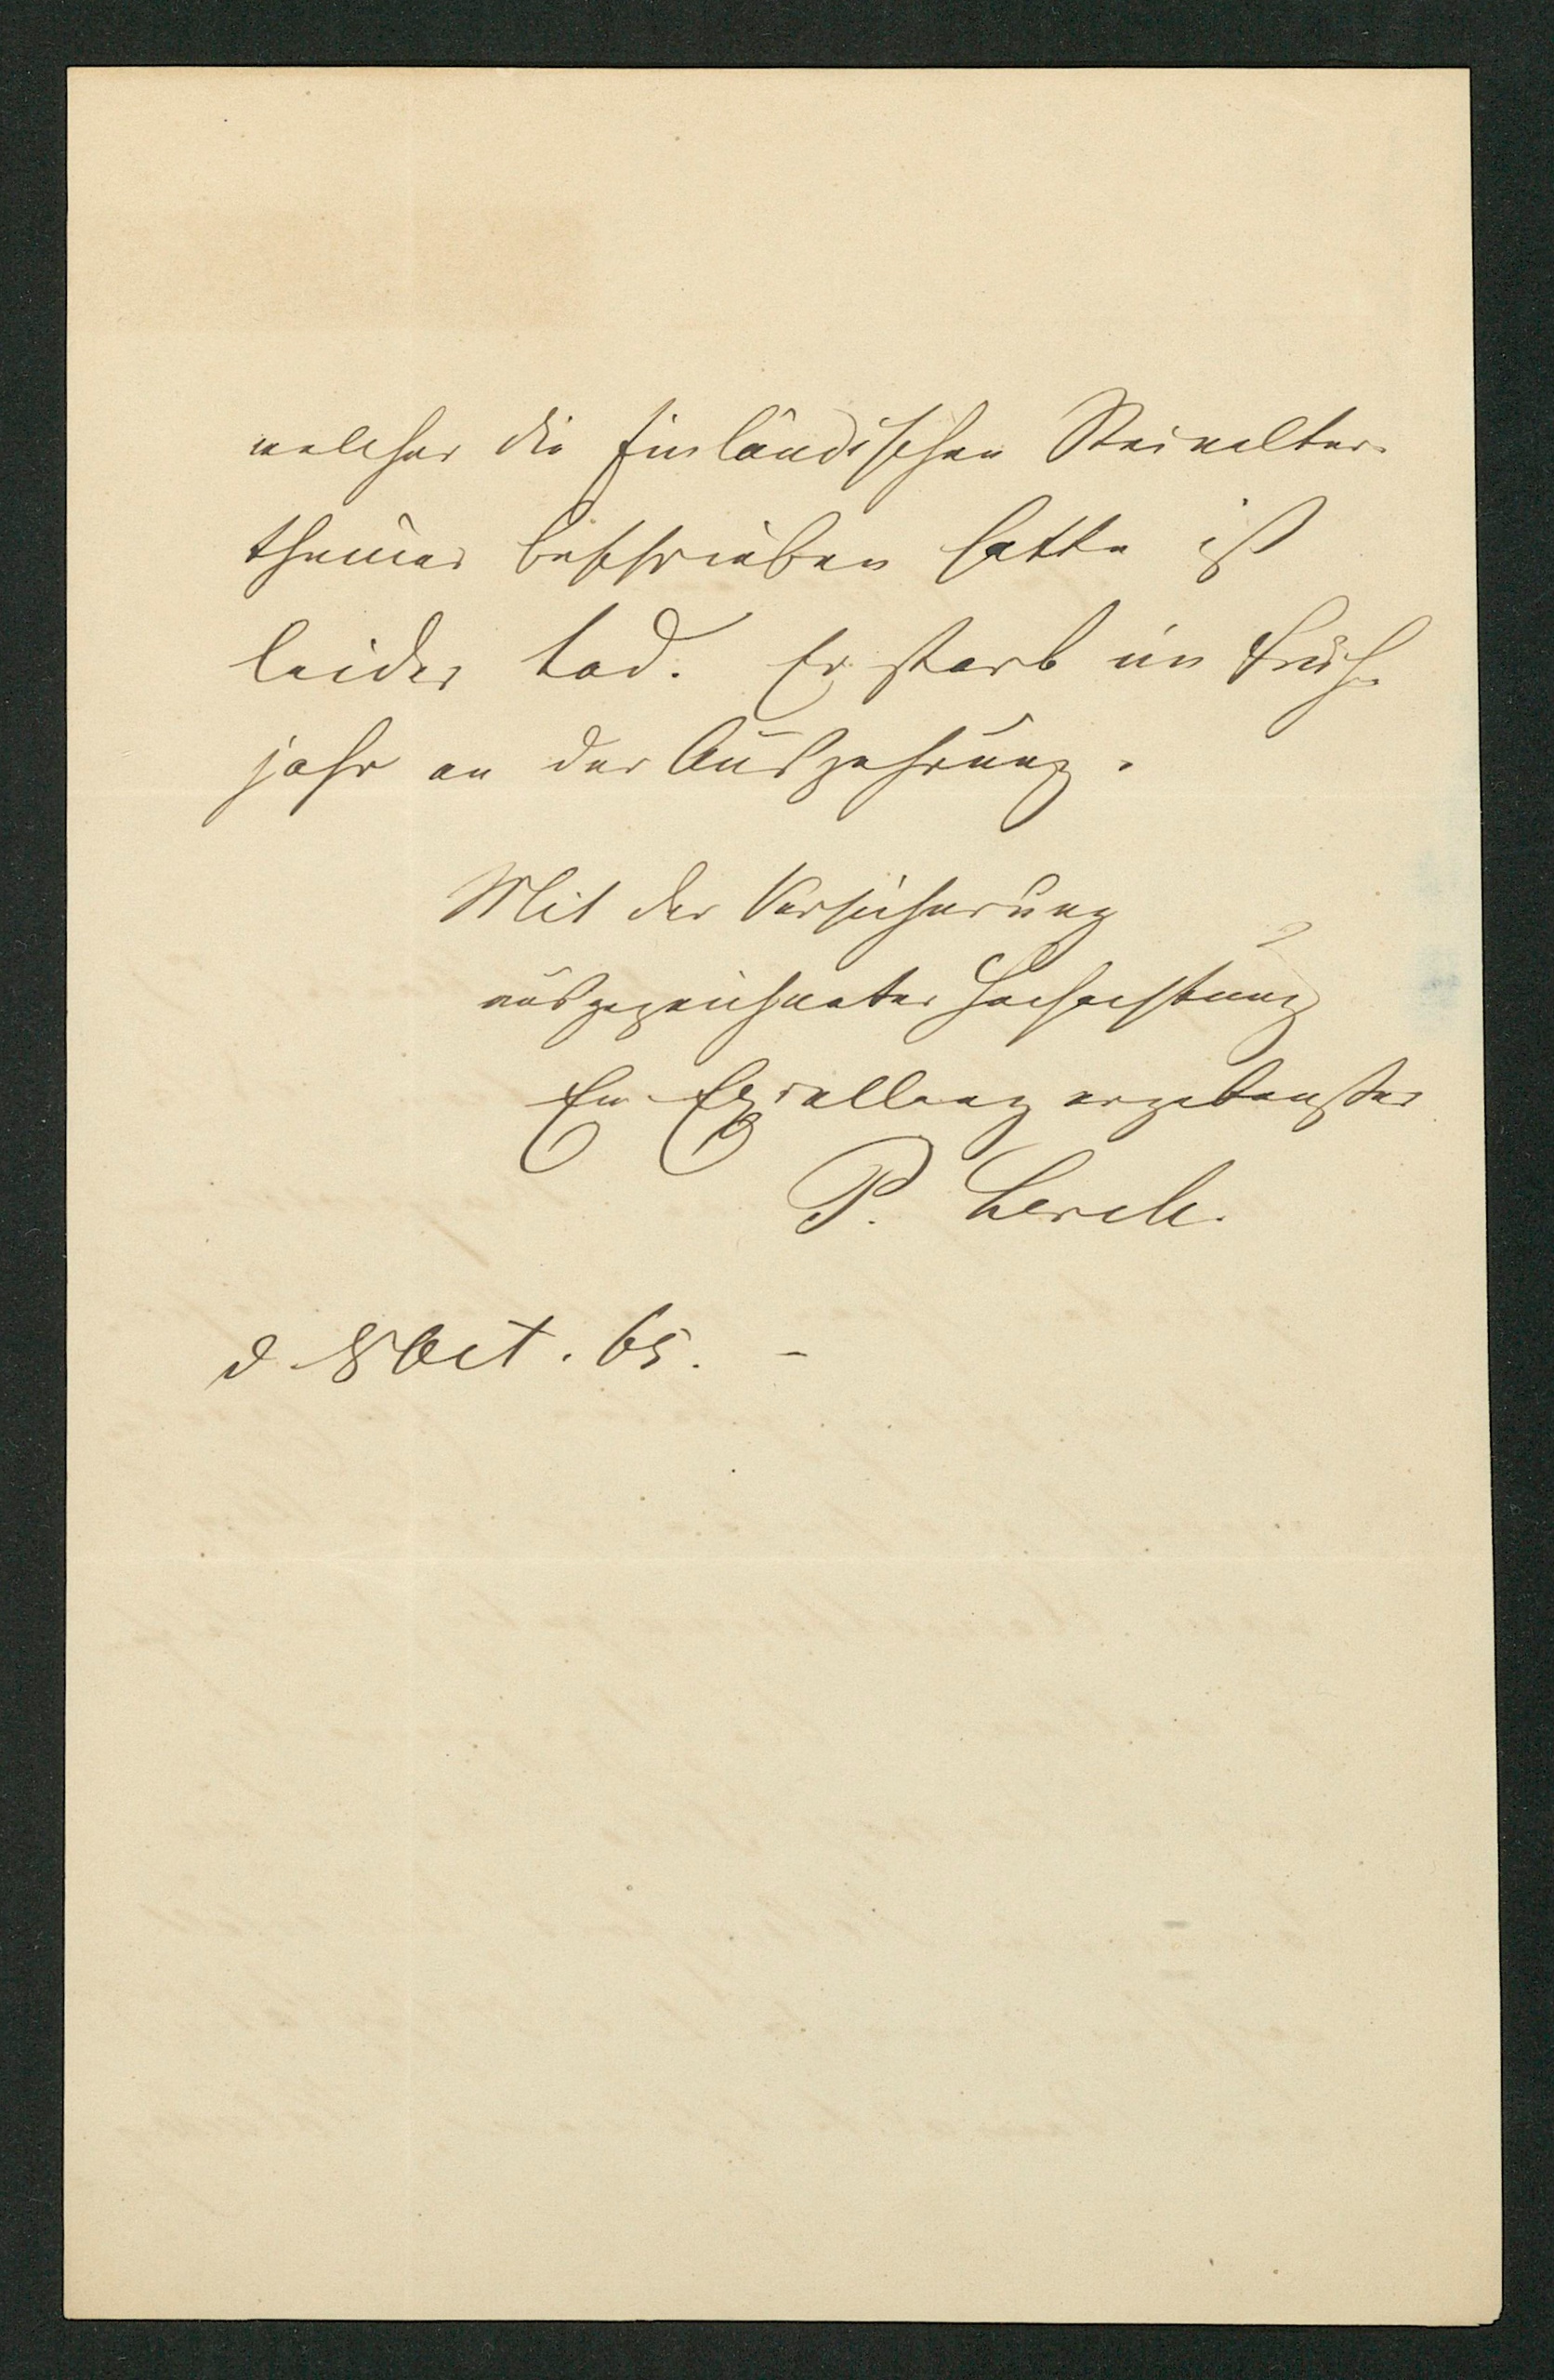 welcher die finländischen Steinalter-
thümer beschrieben hatte ist
leider tod. Er starb im Früh-
jahr an der Auszehrung.
Mit der Versicherung
ausgezeichneter Hochachtung
Ew. Excellenz ergebenster
P. Lerch.
d. 8 Oct. 65. –